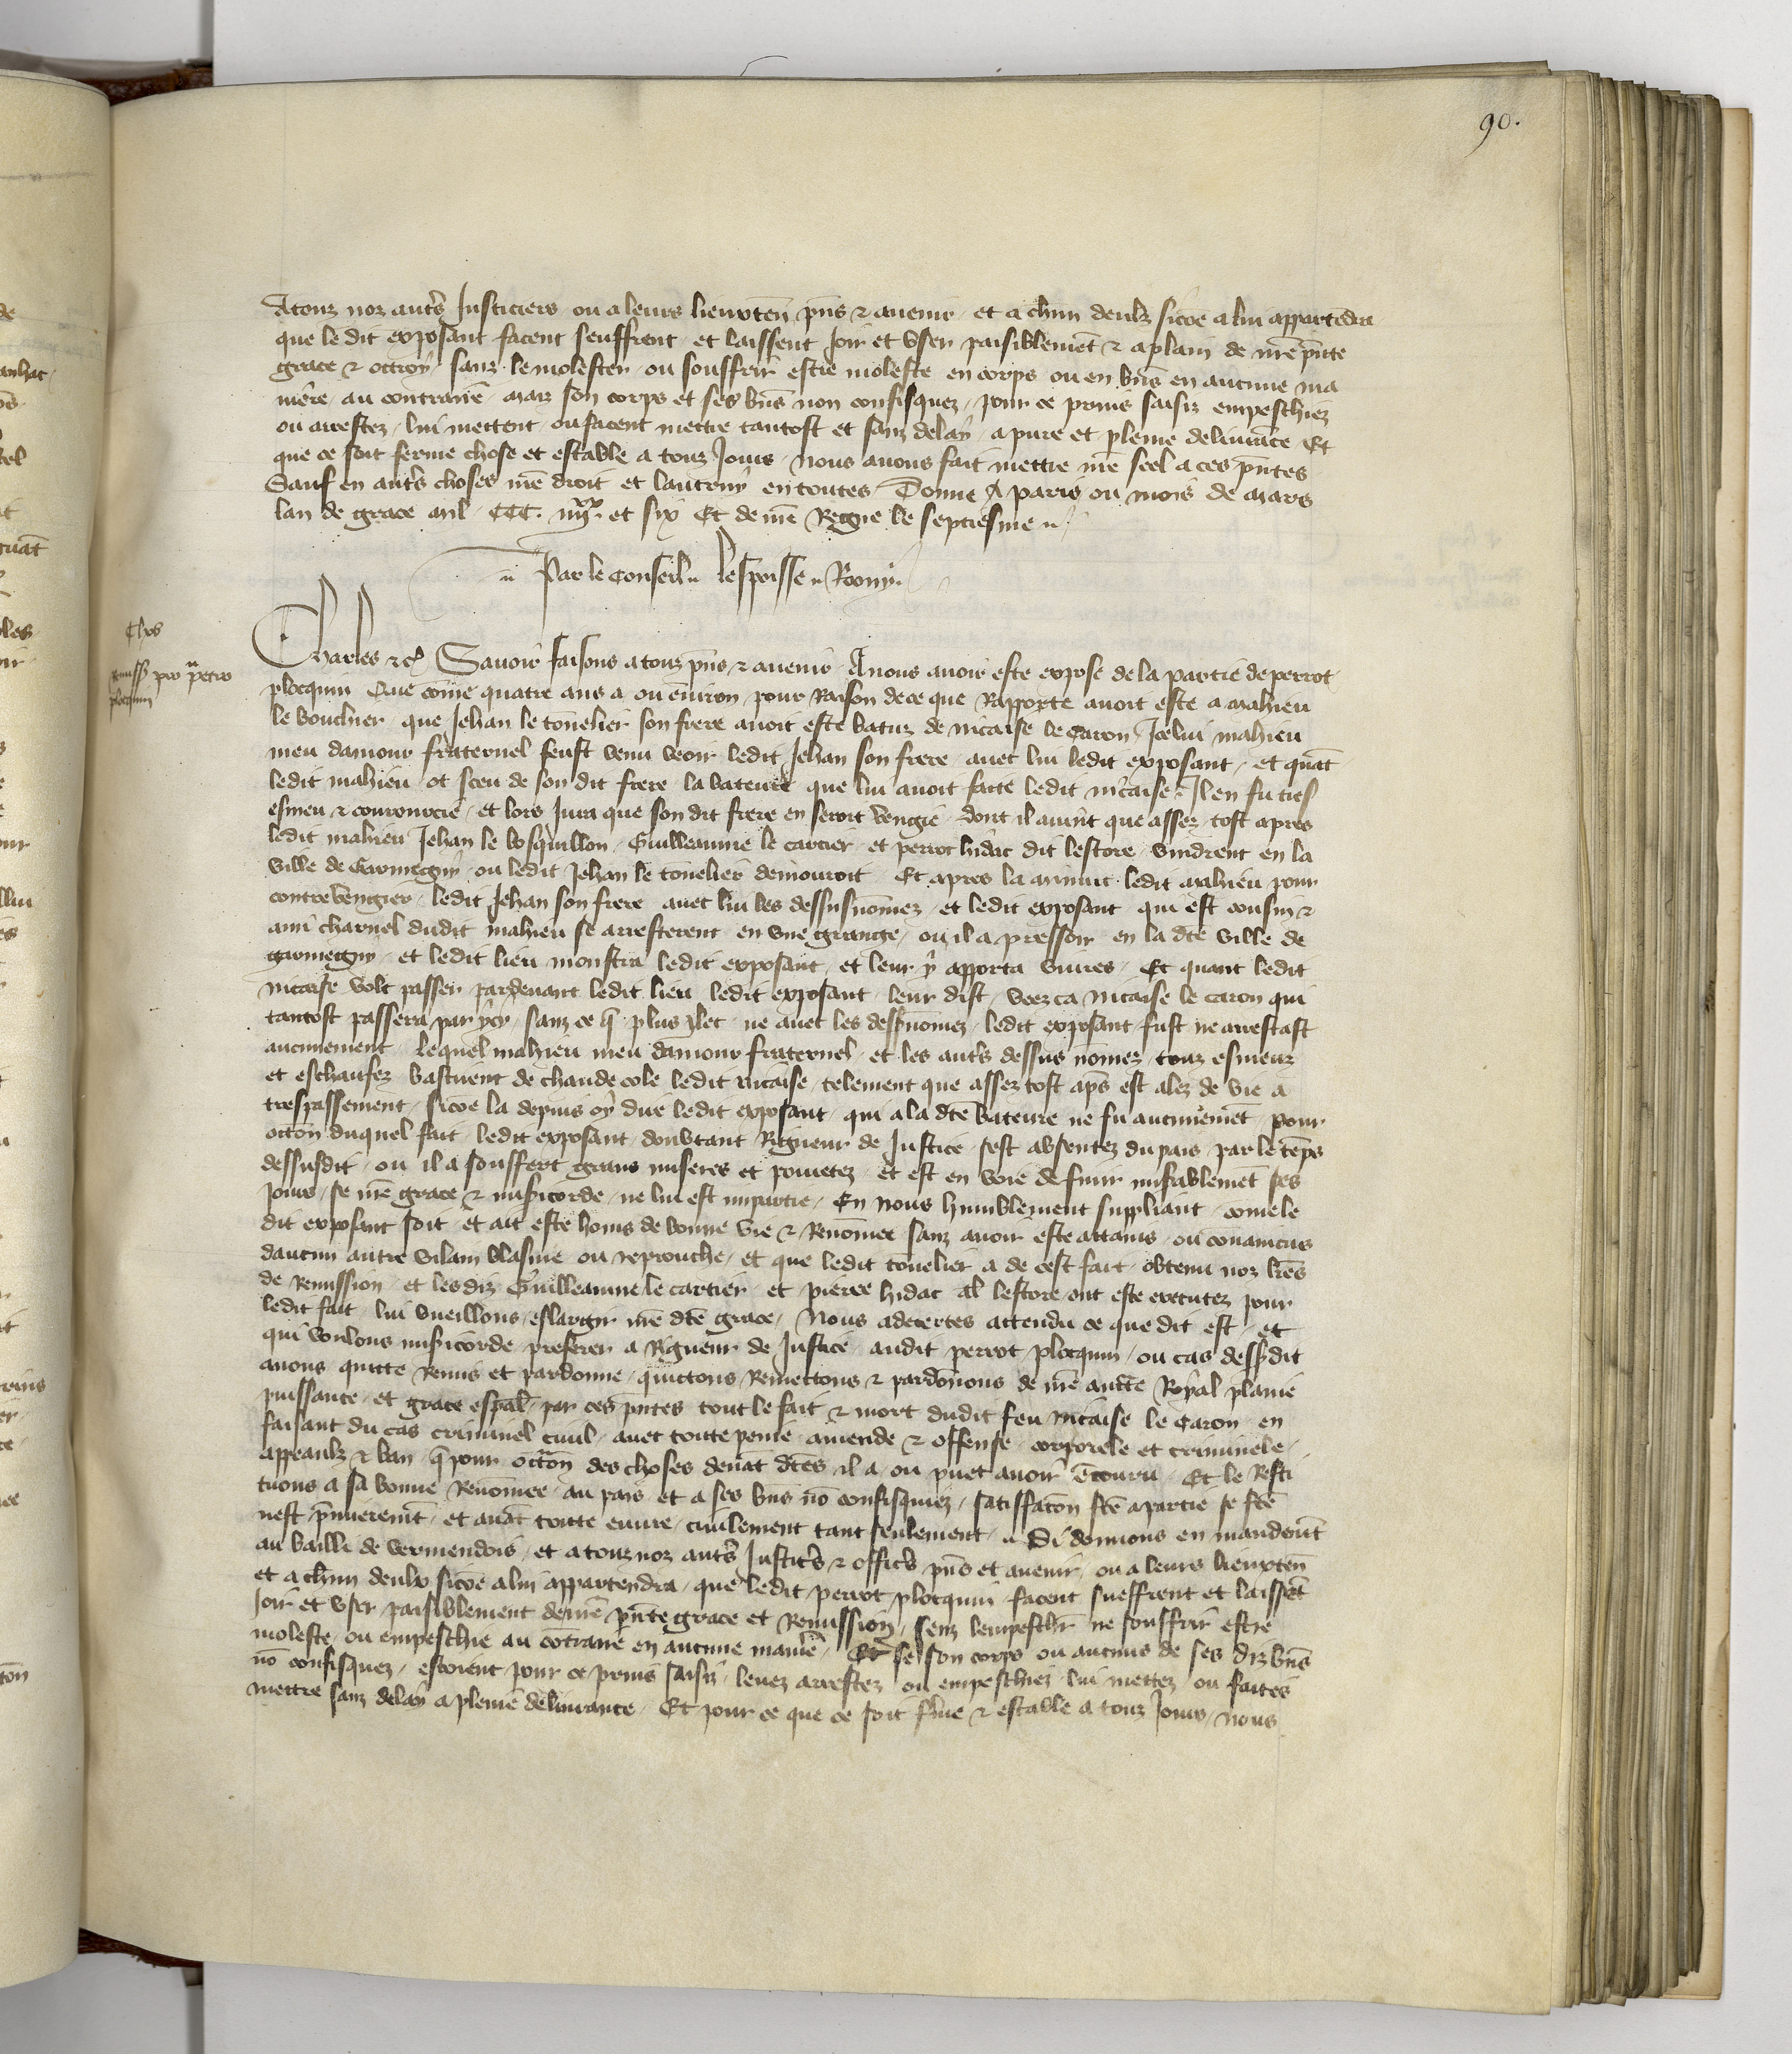 90.
Atouz noz autrẽs Justiciers ou a leurs lieuxteñ pñs & avenir et a chũn deulx sicõe a lui appartẽdra
que le dit exposant facent seuffrent et laissent Joir et user paisiblemẽt & aplain de nr̃e pñte
grace & ottroy sanz le molester ou souffrir estre moleste en corps ou en bñs en aucune ma
niere au contraire maiz son corps et ses bñs non confisquez pour ce prins saisiz empeschiez
ou arrestez lui mettent ou facent mettre tantost et sanz delay a pure et pleine delivrãce Et
que ce soit ferme chose et estable a touz Jours nous avons fait mettre nr̃e seel a ces pñtes
Sauf en autrẽs choses nr̃e droit et lautruy en toutes Donne A paris ou mois de mars
lan de grace mil CCC. iiijxx. et six Et de nr̃e Regne le septiesme
Par le Conseil Lespoisse Romy.
Chles
remiss̃ pro petro
plocquin
Charles &c̃ Savoir faisons atouz pñs & avenir A nous avoir este expose de la partie de perrot
plocquin Que cõme quatre ans a ou ẽviron pour Raison de ce que Rapporte avoit este a mahieu
le bouchier que Jehan le tõnelier son frere avoit este batuz de nicaise le Caron Icelui mahieu
meu damour fraternel feust venu veoir ledit Jehan son frere avec lui ledit exposant et quãt
ledit mahieu ot sceu de son dit frere la bateure que lui avoit faicte ledit nicaise Il en fu tres
esmeu & courroucie et lors Jura que son dit frere en seroit vengie dont il avint que assez tost apres
ledit mahieu Jehan le bosquillon Guilleaume le cartier et perrot hidac dit lestore vindrent en la
ville de Gromegny ou ledit Jehan le tonelier demouroit Et apres la minuit ledit mahieu pour
contrevengier ledit Jehan son frere avec lui les dessusnõmez et ledit exposant qui est cousin &
ami charnel dudit mahieu se arresterent en une grange ou il a pressoir en la dc̃e ville de
gromegny et ledit lieu monstra ledit exposant et leur y apporta vivres Et quant ledit
nicaise volt passer pardevant ledit lieu ledit exposant leur dist veez ca nicaise le caron qui
tantost passera par ycy sanz ce q̃ plus ylec ne avec les dess̃nõmez ledit exposant fust ne arrestast
aucunement lequel mahieu meu damour fraternel et les autrẽs dessus nõmez touz esmeuz
et eschaufez batirent de chaude cole ledit nicaise telement que assez tost ap̃s est alez de vie a
trespassement sicõe la depuis oy dire ledit exposant qui a la dc̃e bateure ne fu aucunemẽt pour
occõn duquel fait ledit exposant doubtant Rigueur de Justice sest absentez du pais par le tẽps
dessusdit ou il a souffert grans miseres et povretez et est en voie de finir mis̃ablemẽt ses
Jours se nr̃e grace & mis̃icorde ne lui est impartie En nous humblement suppliant cõme le
dit exposant soit et ait este homs de bonne vie & Renõmee sanz avoir este attains ou convaincus
daucun autre vilain blasme ou reprouche et que ledit tõnelier a de cest fait obtenu noz lr̃es
de Remission et lesdiz Guilleaume le cartier et pierre hidac al̃ lestore ont este executez pour
ledit fait lui vueillons eslargir nr̃e dc̃e grace Nous adecertes attendu ce que dit est et
qui voulons mis̃icorde preferer a Rigueur de Justice audit perrot plocquin ou cas dess̃dit
avons quitte Remis et pardonne quictons Remettons & pardõnons de nr̃e auct̃e Royal plaine
puissance et grace esp̃al par ces pñtes tout le fait & mort dudit feu nicaise le Caron en
faisant du cas criminel civil avec toute peine amende & offense corporele et criminele
appeaulx & ban q̃ pour occãon des choses devãt dc̃es il a ou puet avoir ẽcouru Et le Resti
tuons a sa bonne Renõmee au pais et a ses bñs nõ confisquez satisfacõn fc̃e apartie se fc̃e
nest p̃mieremẽt et avãt toute euvre civilement tant seulement Si donnons en mandemẽt
au bailli de vermendois et a touz noz autrẽs Justicrs̃ & officrs̃ pñs et avenir ou a leurs lieuxteñ
et a chũn deulx sicõe a lui appartendra que ledit perrot plocquin facent sueffrent et laissẽt
Joir et user paisiblement de nr̃e pñte grace et Remission senz lempeschr̃ ne souffrir estre
moleste ou empeschie au cõtraire en aucune maniẽr Et se son corps ou aucuns de ses diz bñs
nõ confisquez estoient pour ce prins saisiz levez arrestez ou empeschiez lui mettez ou faites
mettre sanz delay a pleine delivrance Et pour ce que ce soit fr̃me & estable a touz Jours nous